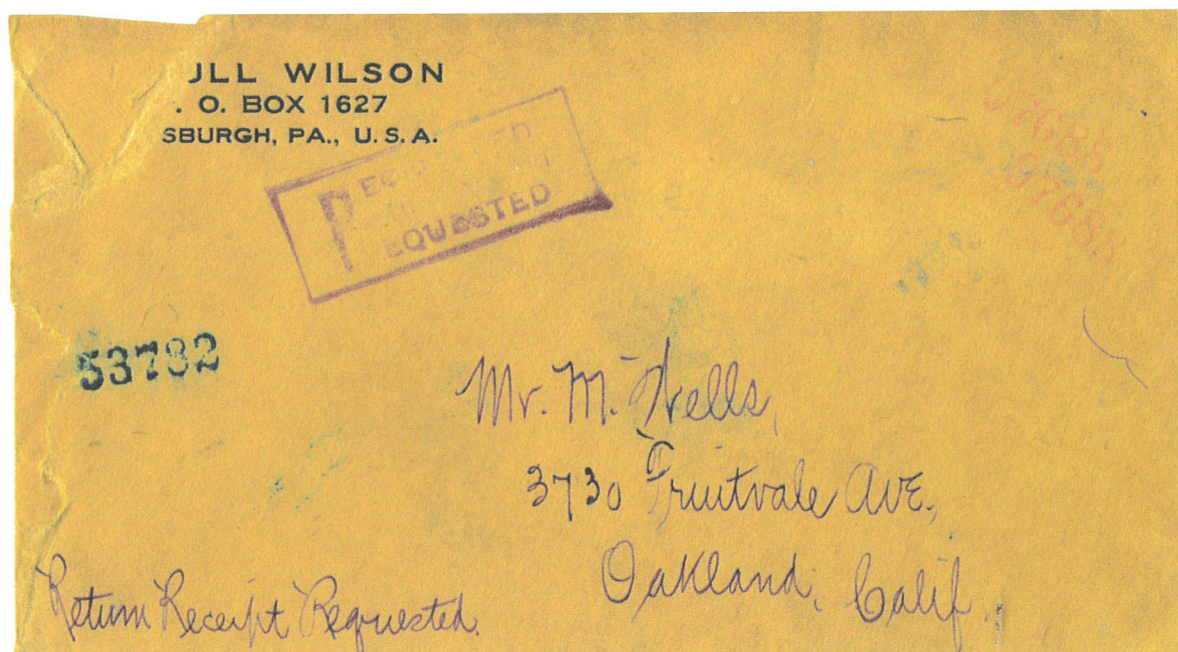 ULL WILSON
. O. BOX 1627
SBURGH, PA., U. S. A.
EQUESTED
97688
97688
53782
Mr. M. Wells,
3730 Fruitvale Ave.,
Oakland, Calif.
Return Receipt Requested.